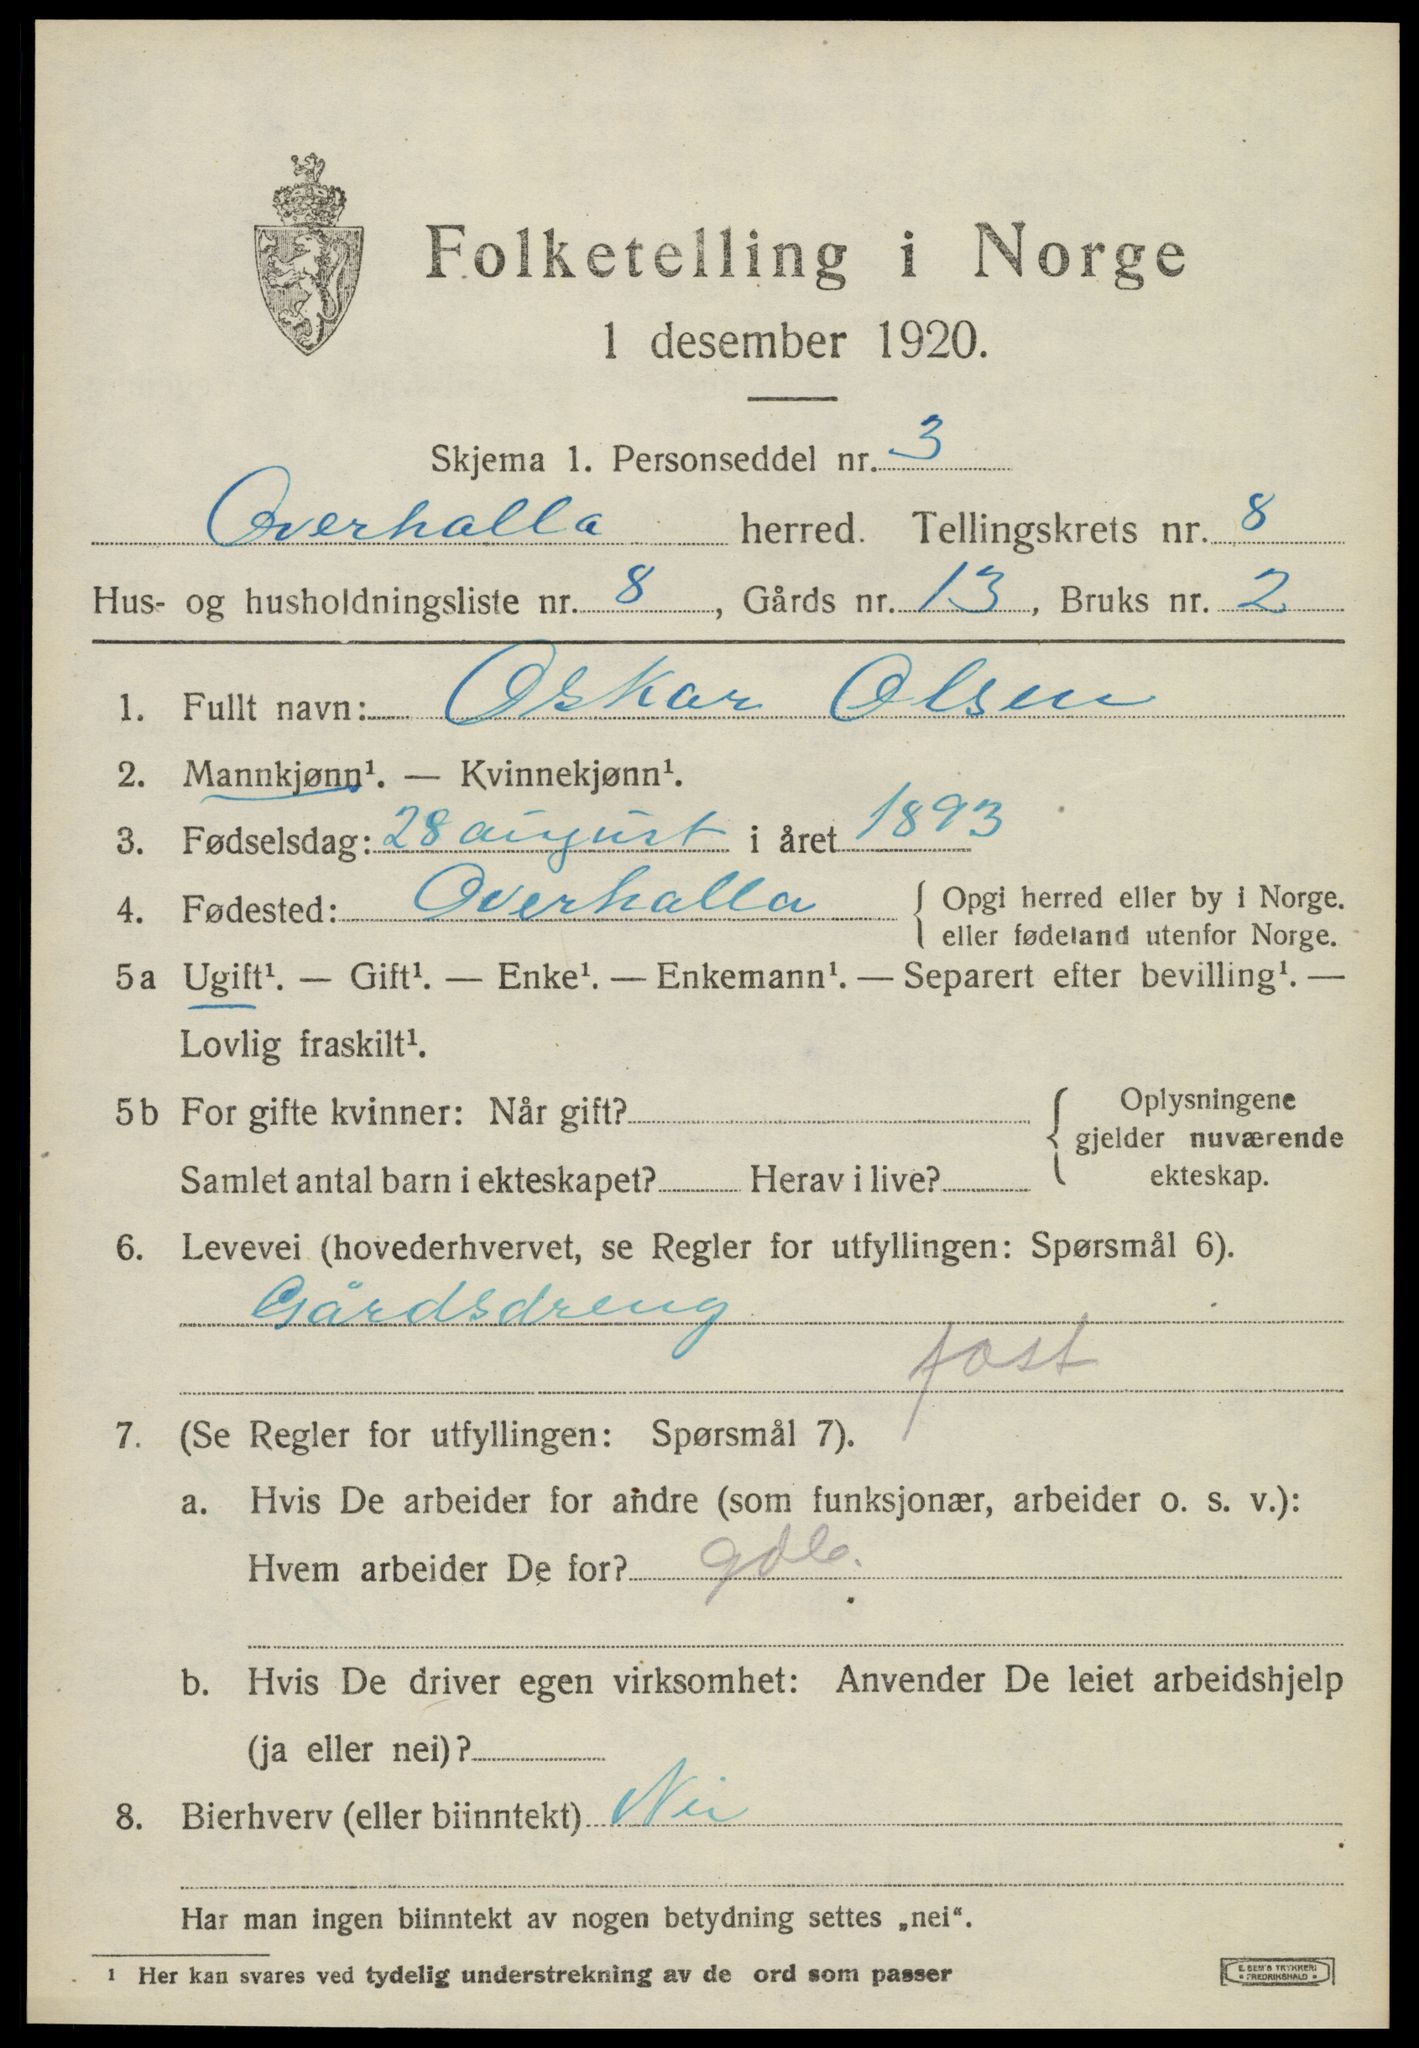 Folketelling i Norge
1 desember 1920.
Skjema 1. Personseddel nr. 3
Overhalla herred. Tellingskrets nr. 8
Hus- og husholdningsliste nr. 8, Gårds nr. 13, Bruks nr. 2
1. Fullt navn: Oskar Olsen
2. Mannkjønn¹. — Kvinnekjønn¹.
3. Fødselsdag: 28 august i året 1893
4. Fødested: Overhalla { Opgi herred eller by i Norge.
eller fødeland utenfor Norge.
5a Ugift¹. — Gift¹. — Enke¹. — Enkemann¹. — Separert efter bevilling¹. —
Lovlig fraskilt¹.
5b For gifte kvinner: Når gift? { Oplysningene
gjelder nuværende
Samlet antal barn i ekteskapet? Herav i live? ekteskap.
6. Levevei (hovederhvervet, se Regler for utfyllingen: Spørsmål 6).
Gårdsdreng
fast
7. (Se Regler for utfyllingen: Spørsmål 7).
a. Hvis De arbeider for andre (som funksjonær, arbeider o. s. v.):
Hvem arbeider De for?
b. Hvis De driver egen virksomhet: Anvender De leiet arbeidshjelp
(ja eller nei)?
8. Bierhverv (eller biinntekt) Nei
Har man ingen biinntekt av nogen betydning settes „nei“.
¹ Her kan svares ved tydelig understrekning av de ord som passer
E. SEM'S TRYKKERI
FREDRIKSHALD